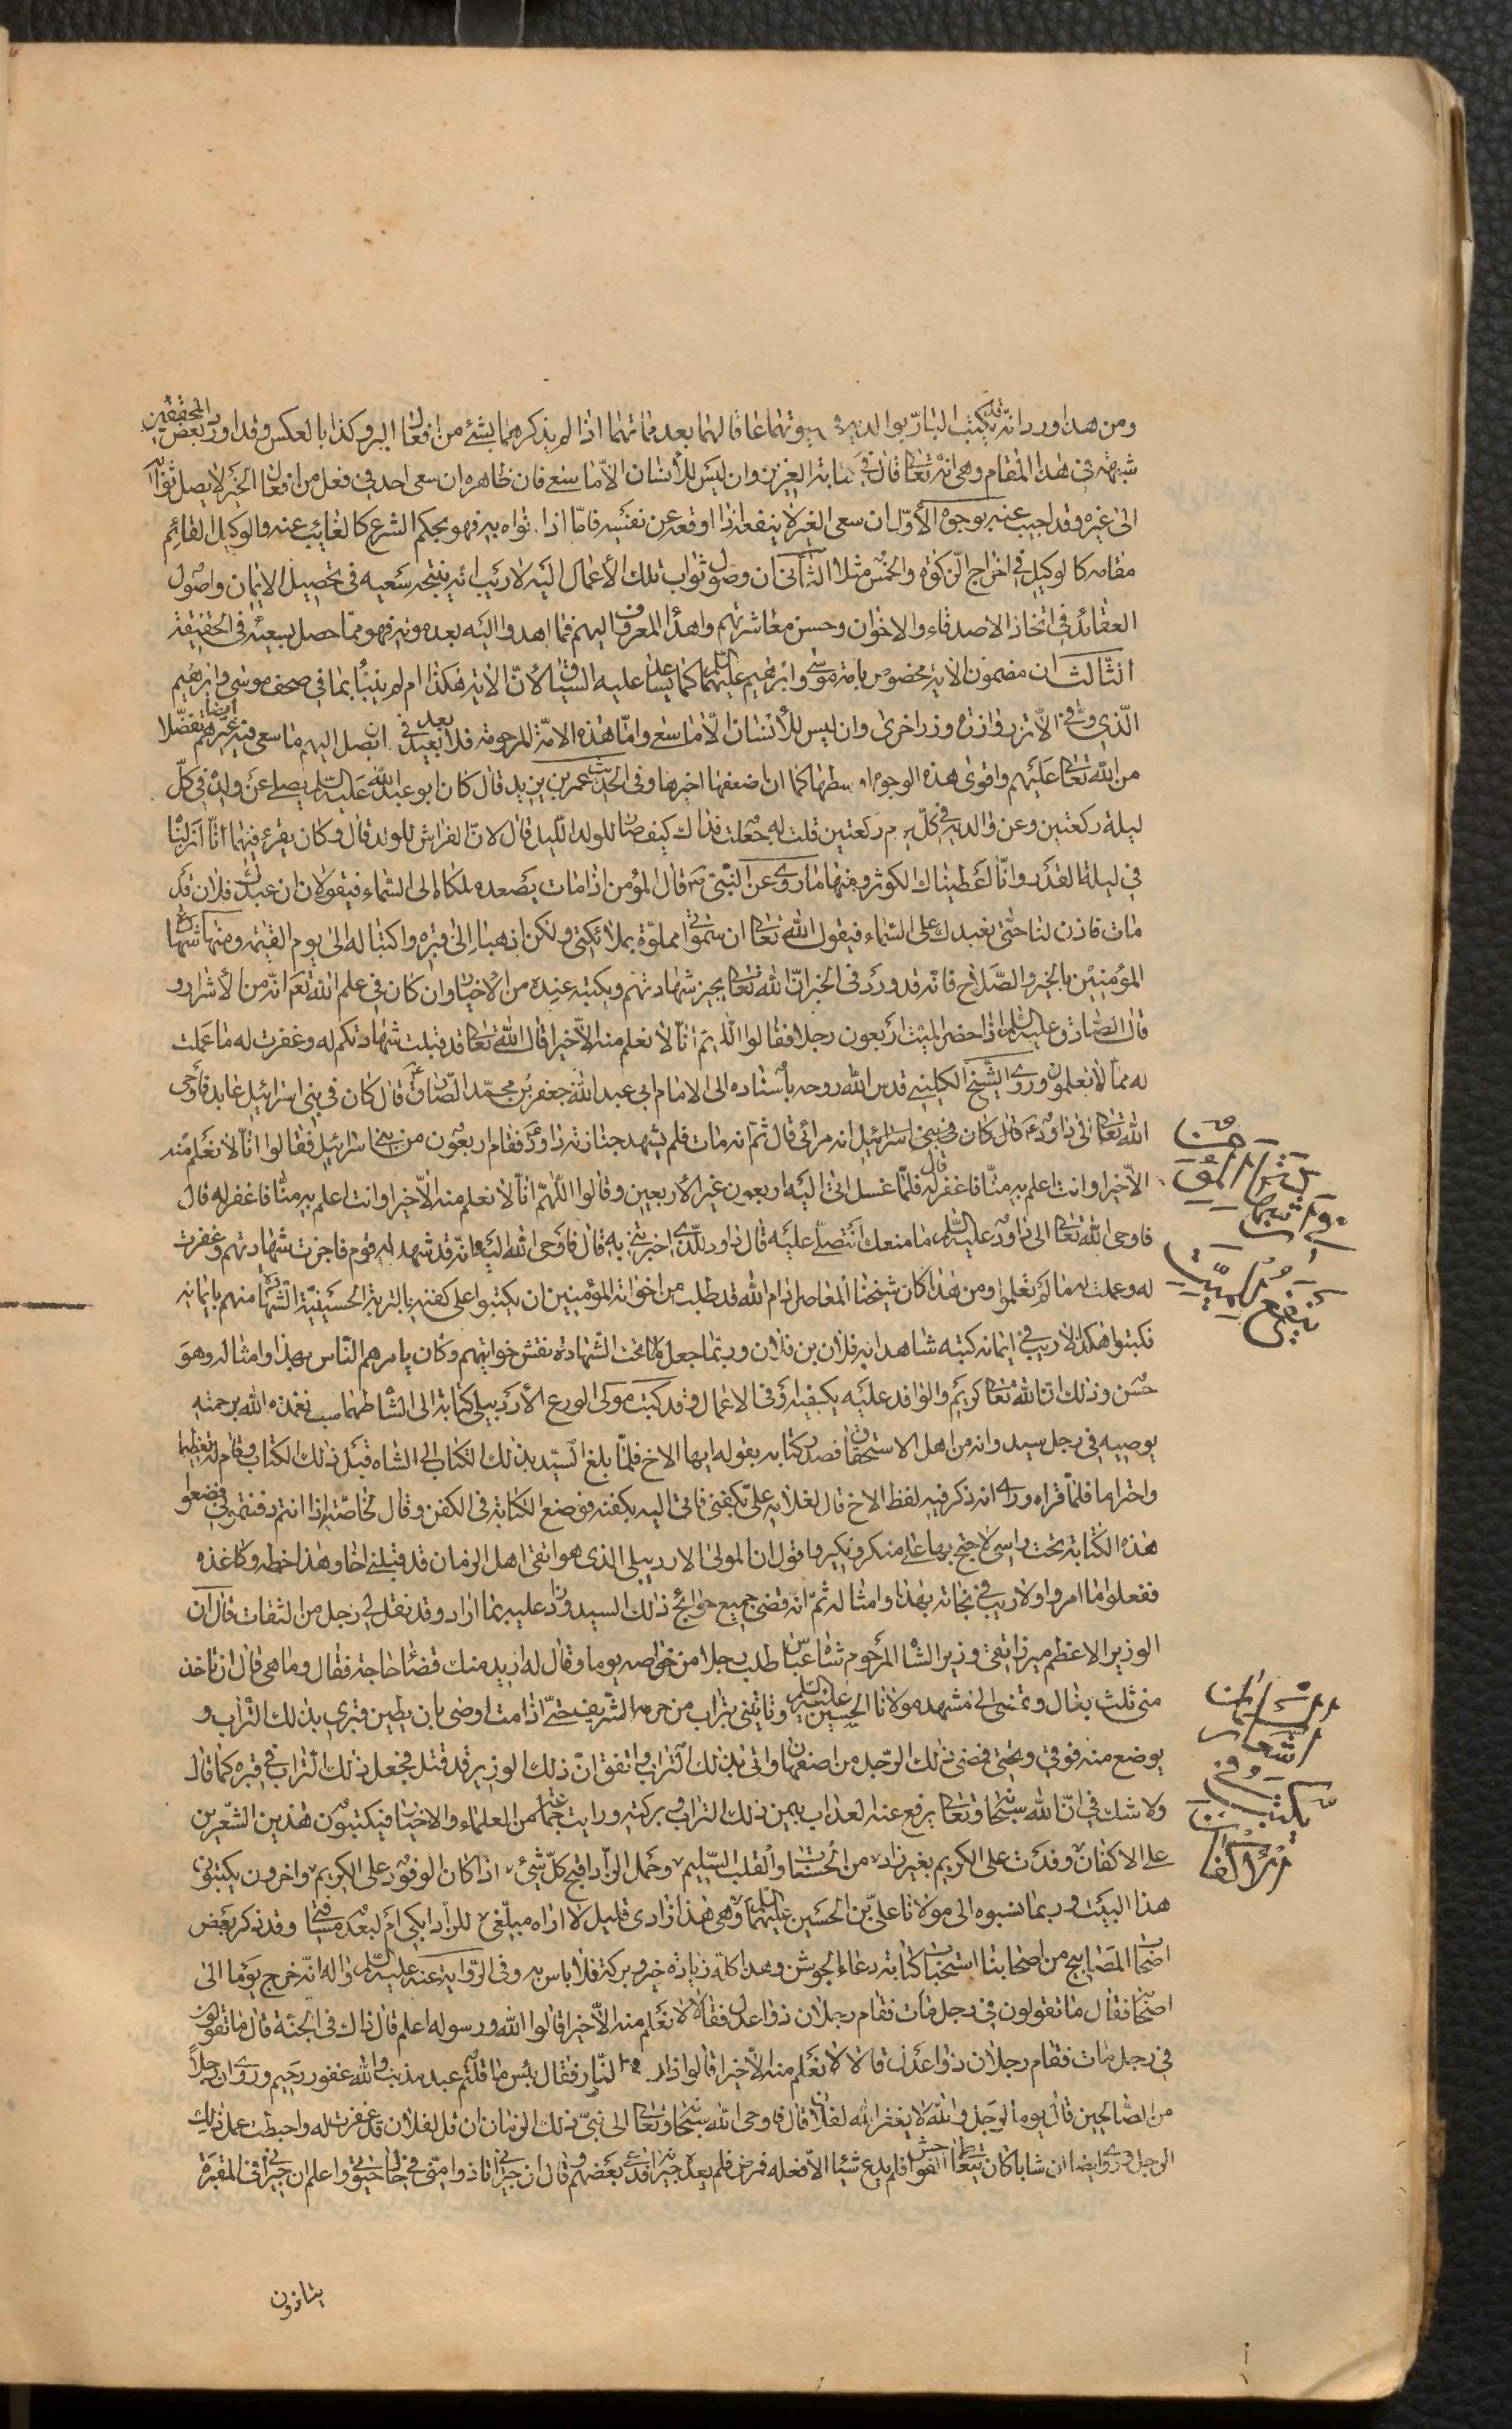 ومن هذا ورد انه قد يكتب البار بوالديه في حيوتهما عاقا لهما بعد مماتهما اذا لم يذكرهما بشئ من افعال البر وكذا بالعكس وقد اورد بعض المحققين
شبهة في هذا المقام وهي انه تعالى قال في كتابه العزيز وان ليس للانسان الا ما سعى فان ظاهره ان سعى احد في فعل من افعال الخير لا يصل ثوابه
الى غيره وقد اجيب عنه بوجوه الاول ان سعى الغير لا ينفعه اذا اوقعه عن نفسه فاما اذا نواه به فهو بحكم الشرع كالنائب عنه والوكيل القائم
مقامه كالوكيل في اخراج الزكوة والخمس مثلا الثاني ان وصول ثواب تلك الاعمال اليه لا ريب انه نتيجة سعيه في تحصيل الايمان واصول
العقائد في اتخاذ الاصدقاء والاخوان وحسن معاشرتهم واهداء المعروف اليهم فما اهدوا اليه بعد موته فهو مما حصل بسعيه في الحقيقة
الثالث ان مضمون الاية مخصوص بامة موسى وابراهيم عليهما السلم كما يساعد عليه السياق لان الاية هكذا ام لم ينبأ بما في صحف موسى وابراهيم
الذي وفى الا تزر وازرة وزر اخرى وان ليس للانسان الا ما سعى واما هذه الامة المرحومة فلا بعد في ان يصل اليهم ما سعى فيه غيرهم ايضا تفضلا
من الله تعالى عليهم واقوى هذه الوجوه اوسطها كما ان اضعفها اخيرها وفي الحديث عمر بن يزيد قال كان ابو عبد الله عليه السلم يصلى عن ولده في كل
ليلة ركعتين وعن والديه في كل يوم ركعتين قلت له جعلت فداك كيف صار للولد الليل قال لان الفراش للولد قال وكان يقرء فيهما انا انزلناه
في ليلة القدر وانا اعطيناك الكوثر ومنها ما روى عن النبي ص قال المؤمن اذا مات يصعد ملكاه الى السماء فيقولان ان عبدك فلان قد
مات فاذن لنا حتى نعبدك على السماء فيقول الله تعالى ان سمواتي مملوة بملائكتي ولكن اذهبا الى قبره واكتبا له الى يوم القيمة ومنها شهادة
المؤمنين بالخير والصلاح فانه قد ورد في الخبر ان الله تعالى يجيز شهادتهم ويكتبه عنده من الاخيار وان كان في علم الله تعالى انه من الاشرار و
قال الصادق عليه السلم اذا حضر الميت اربعون رجلا فقالوا اللهم انا لا نعلم منه الا خيرا قال الله تعالى قد قبلت شهادتكم له وغفرت له ما عملت
له مما لا تعلمون وروى الشيخ الكليني قدس الله روحه باسناده الى الامام ابي عبد الله جعفر بن محمد الصادق ع قال كان في بنى اسرائيل عابد فاوحى
الله تعالى الى داود ع قال كان في بنى اسرائيل انه مرائى قال ثم انه مات فلم يشهد جنازته داود ع فقام اربعون من بنى اسرائيل فقالوا انا لا نعلم منه
الا خيرا وانت اعلم به منا فاغفر له قال فلما غسل اتى اليه اربعون غير الاربعين وقالوا اللهم انا لا نعلم منه الا خيرا وانت اعلم به منا فاغفر له قال
فاوحى الله تعالى الى داود عليه السلم ما منعك ان تصلى عليه قال داود للذى اخبرتني به قال فاوحى الله اليه انه قد شهد له قوم فاجزت شهادتهم وغفرت
له وعملت له ما لم تعلموا ومن هذا كان شيخنا المعاصر ادام الله قد طلب من اخوانه المؤمنين ان يكتبوا على كفنه بالتربة الحسينية الشهادة منهم بايمانه
فكتبوا هكذا لا ريب في ايمانه كتبه شاهدا به فلان بن فلان وربما جعل لها تحت الشهادة نقش خواتيمهم وكان يامرهم الناس بهذا وامثاله وهو
حسن وذلك ان الله تعالى كريم والوافد عليه يكفيه ادنى الاعمال وقد كتب مولى الورع الاردبيلى كتابة الى الشاه طهماسب تغمده الله برحمته
يوصيه في رجل سيد وانه من اهل الاستحقاق فصدر كتابه بقوله ايها الاخ فلما بلغ السيد بذلك الكتاب الى الشاه قبل ذلك الكتاب وقام له تعظيما
واحتراما فلما قراه وراى انه ذكر فيه لفظ الاخ قال لغلامه على بكفنى فاتى اليه بكفنه فوضع الكتابة في الكفن وقال لخاصته اذا انتم دفنتموني فضعوا
هذه الكتابة تحت راسى لاحتج بها على منكر ونكير واقول ان المولى الاردبيلى الذى هو اتقى اهل الزمان قد قبلنى اخا وهذا خطه وكاغذه
ففعلوا ما امروا ولا ريب في نجاته بهذا وامثاله ثم انه قضى جميع حوائج ذلك السيد وزاد عليه بما اراد وقد نقل لى رجل من الثقات قال ان
الوزير الاعظم ميرزا تقى وزير الشاه المرحوم شاه عباس طلب رجلا من خواصه يوما وقال له اريد منك قضاء حاجة فقال وما هى قال ان تاخذ
منى ثلث بغال وتمضى الى مشهد مولانا الحسين عليه السلم وتاتيني بتراب من حرمه الشريف حتى اذا مت اوصى بان يطين قبرى بذلك التراب و
يوضع منه فوقى وتحتى فمضى ذلك الرجل من اصفهان واتى بذلك التراب واتفق ان ذلك الوزير قد قتل فجعل ذلك التراب في قبره كما قال
ولا شك في ان الله سبحانه وتعالى يرفع عنه العذاب بيمن ذلك التراب وبركته ورايت جماعة من العلماء والاخيار فيكتبون هذين الشعرين
على الاكفان وفدت على الكريم بغير زاد من الحسنات والقلب السليم وحمل الزاد اقبح كل شئ اذا كان الوفود على الكريم واخرون يكتبون
هذا البيت وربما نسبوه الى مولانا على بن الحسين عليهما السلم وهى هذا زادى قليل لا اراه مبلغى للزاد ابكى ام لبعد مسافتى وقد ذكر بعض
اصحاب المصابيح من اصحابنا استحباب كتابة دعاء الجوشن وهذا كله زيادة خير وبركة فلا باس به وفى الرواية عنه عليه السلم واله انه خرج يوما الى
اصحابه فقال ما تقولون في رجل مات فقام رجلان ذوا عدل فقالا لا نعلم منه الا خيرا قالوا الله ورسوله اعلم قال ذاك في الجنة قال ما تقولون
في رجل مات فقام رجلان ذوا عدل قالا لا نعلم منه الا خيرا قالوا ذاك في النار فقال بئس ما قلتم عبد مذنب والله غفور رحيم وروى ان رجلا
من الصالحين قال يوما لرجل والله لا يغفر الله لفلان قال فاوحى الله سبحانه وتعالى الى نبى ذلك الزمان ان قل لفلان قد غفرت له واحبطت عمل ذلك
الرجل وروى ايضا ان شابا كان يتعاطى الفواحش فلم يدع شيئا الا فعله فمرض فلم يعده جيرانه فدعى بعضهم وقال ان جيرانى تاذوا منى في حال حيوتى واعلم ان جيرانى في المقبرة
يتاذون
شهادة
ينفع الميت
الاشعار
يكتب
الاكفان